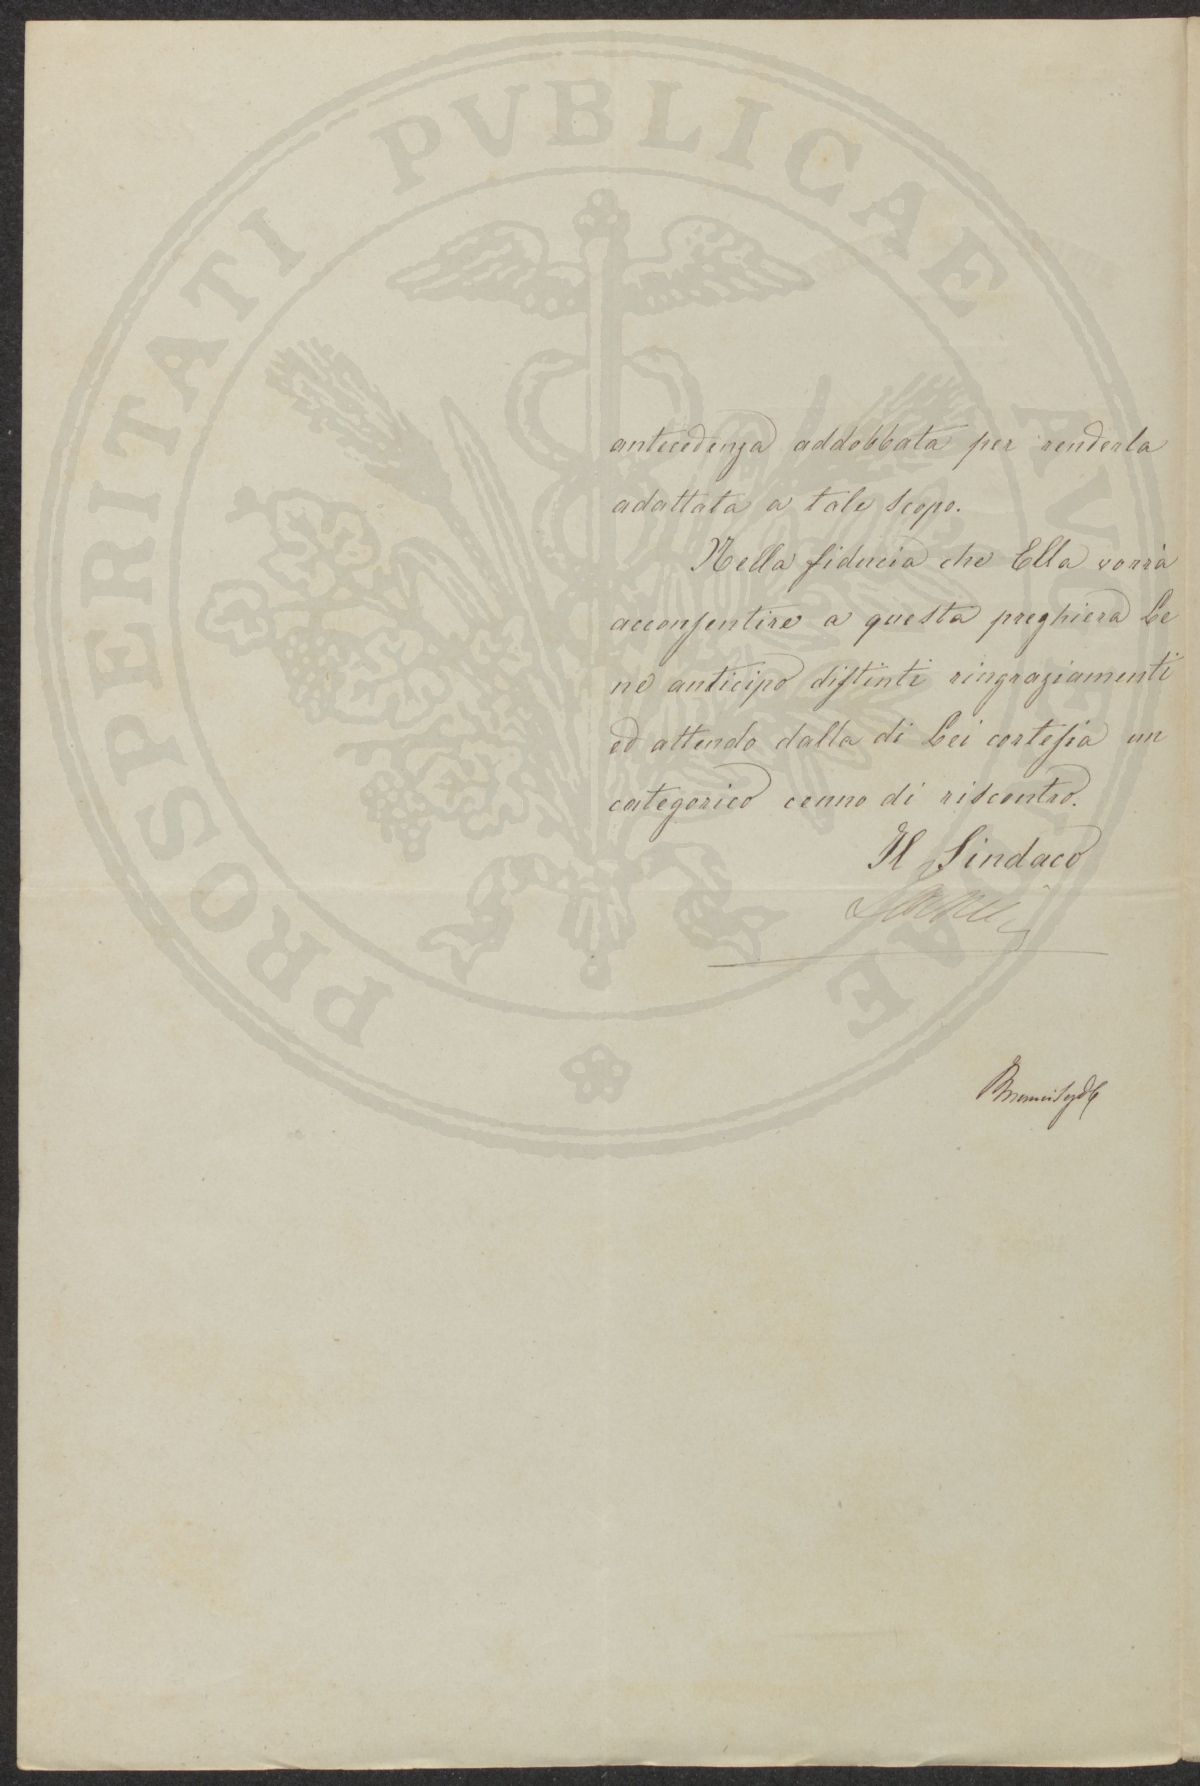 PROSPERITATI PVBLICAE AVGENDAE
antecedenza addobbata per renderla
adattata a tale scopo.
Nella fiducia che Ella vorrà
acconsentire a questa preghiera Le
ne anticipo distinti ringraziamenti
ed attendo dalla di Lei cortesia un
categorico cenno di riscontro.
Il Sindaco